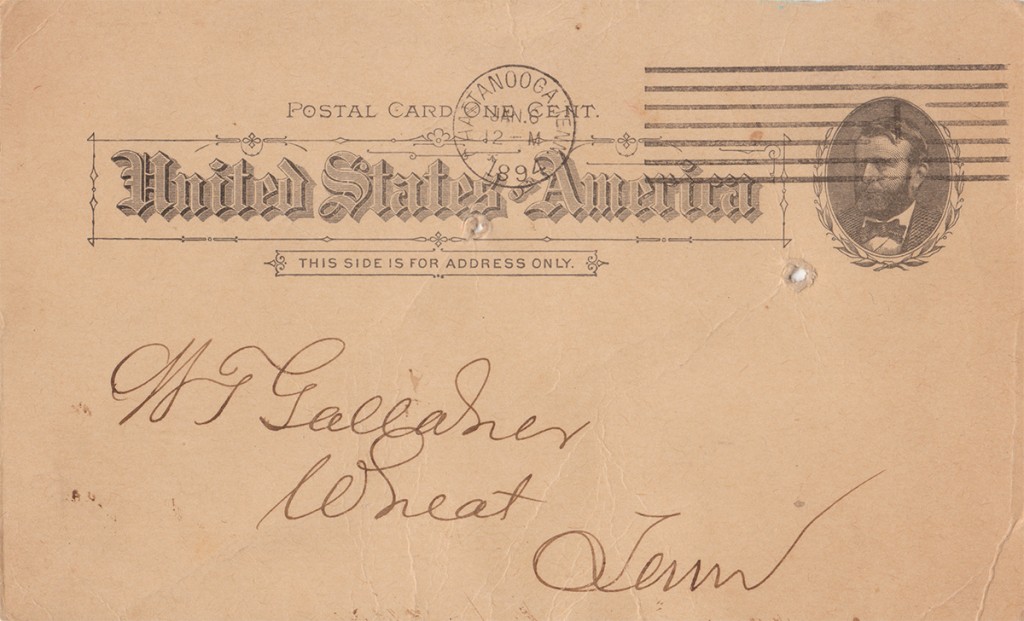 POSTAL CARD ONE CENT.
CHATTANOOGA, TENN.
JAN. 6
12 - M
1894
United States of America
THIS SIDE IS FOR ADDRESS ONLY.
W T Gallaher
Wheat
Tenn